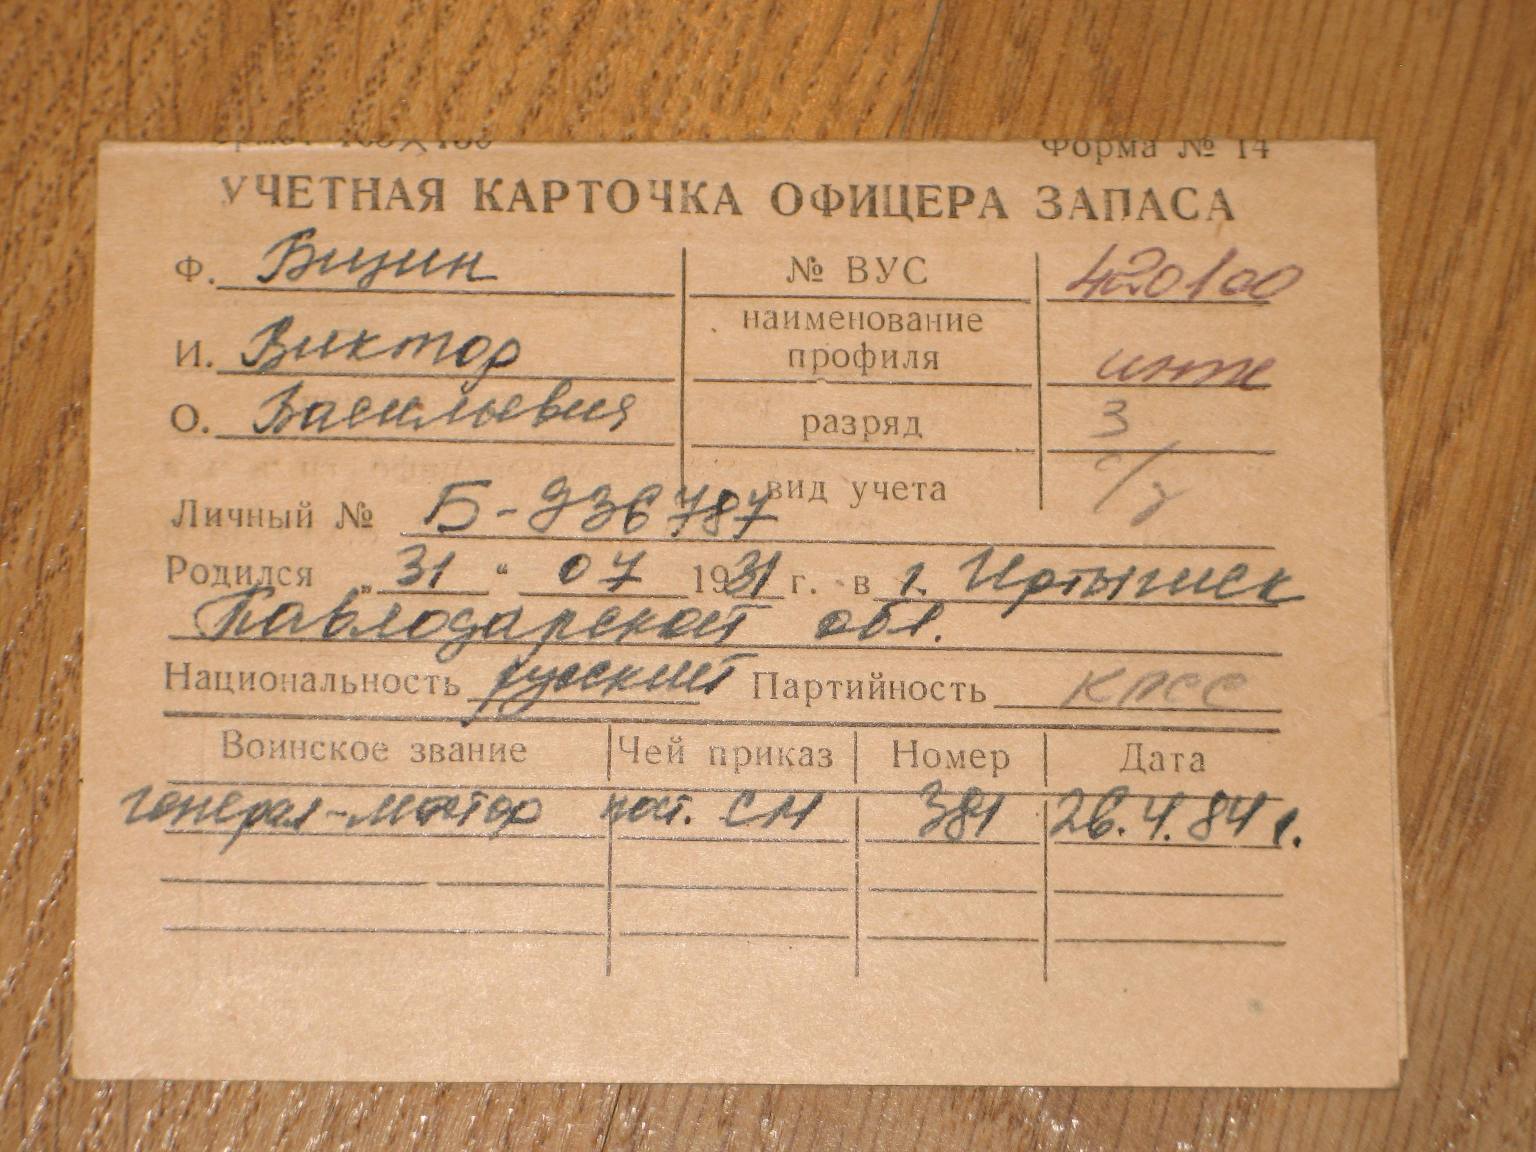 Форма № 14
УЧЕТНАЯ КАРТОЧКА ОФИЦЕРА ЗАПАСА
Ф. Бизин № ВУС 420100
наименование
И. Виктор профиля инж
О. Васильевич разряд 3
вид учета
Личный № Б-936787
Родился „31“ 07 1931 г. в г. Иртышск
Павлодарской обл.
Национальность русский Партийность КПСС
Воинское звание Чей приказ Номер Дата
генерал-майор пост. СМ 381 26.4.84 г.